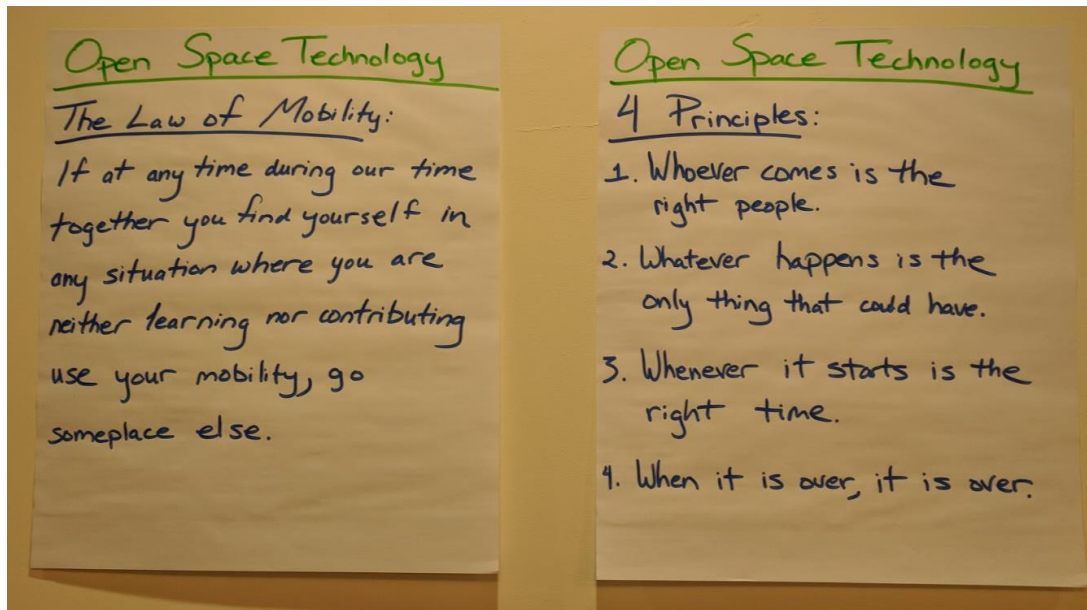 Open Space Technology
The Law of Mobility:
If at any time during our time
together you find yourself in
any situation where you are
neither learning nor contributing
use your mobility, go
someplace else.
Open Space Technology
4 Principles:
1. Whoever comes is the
right people.
2. Whatever happens is the
only thing that could have.
3. Whenever it starts is the
right time.
4. When it is over, it is over.